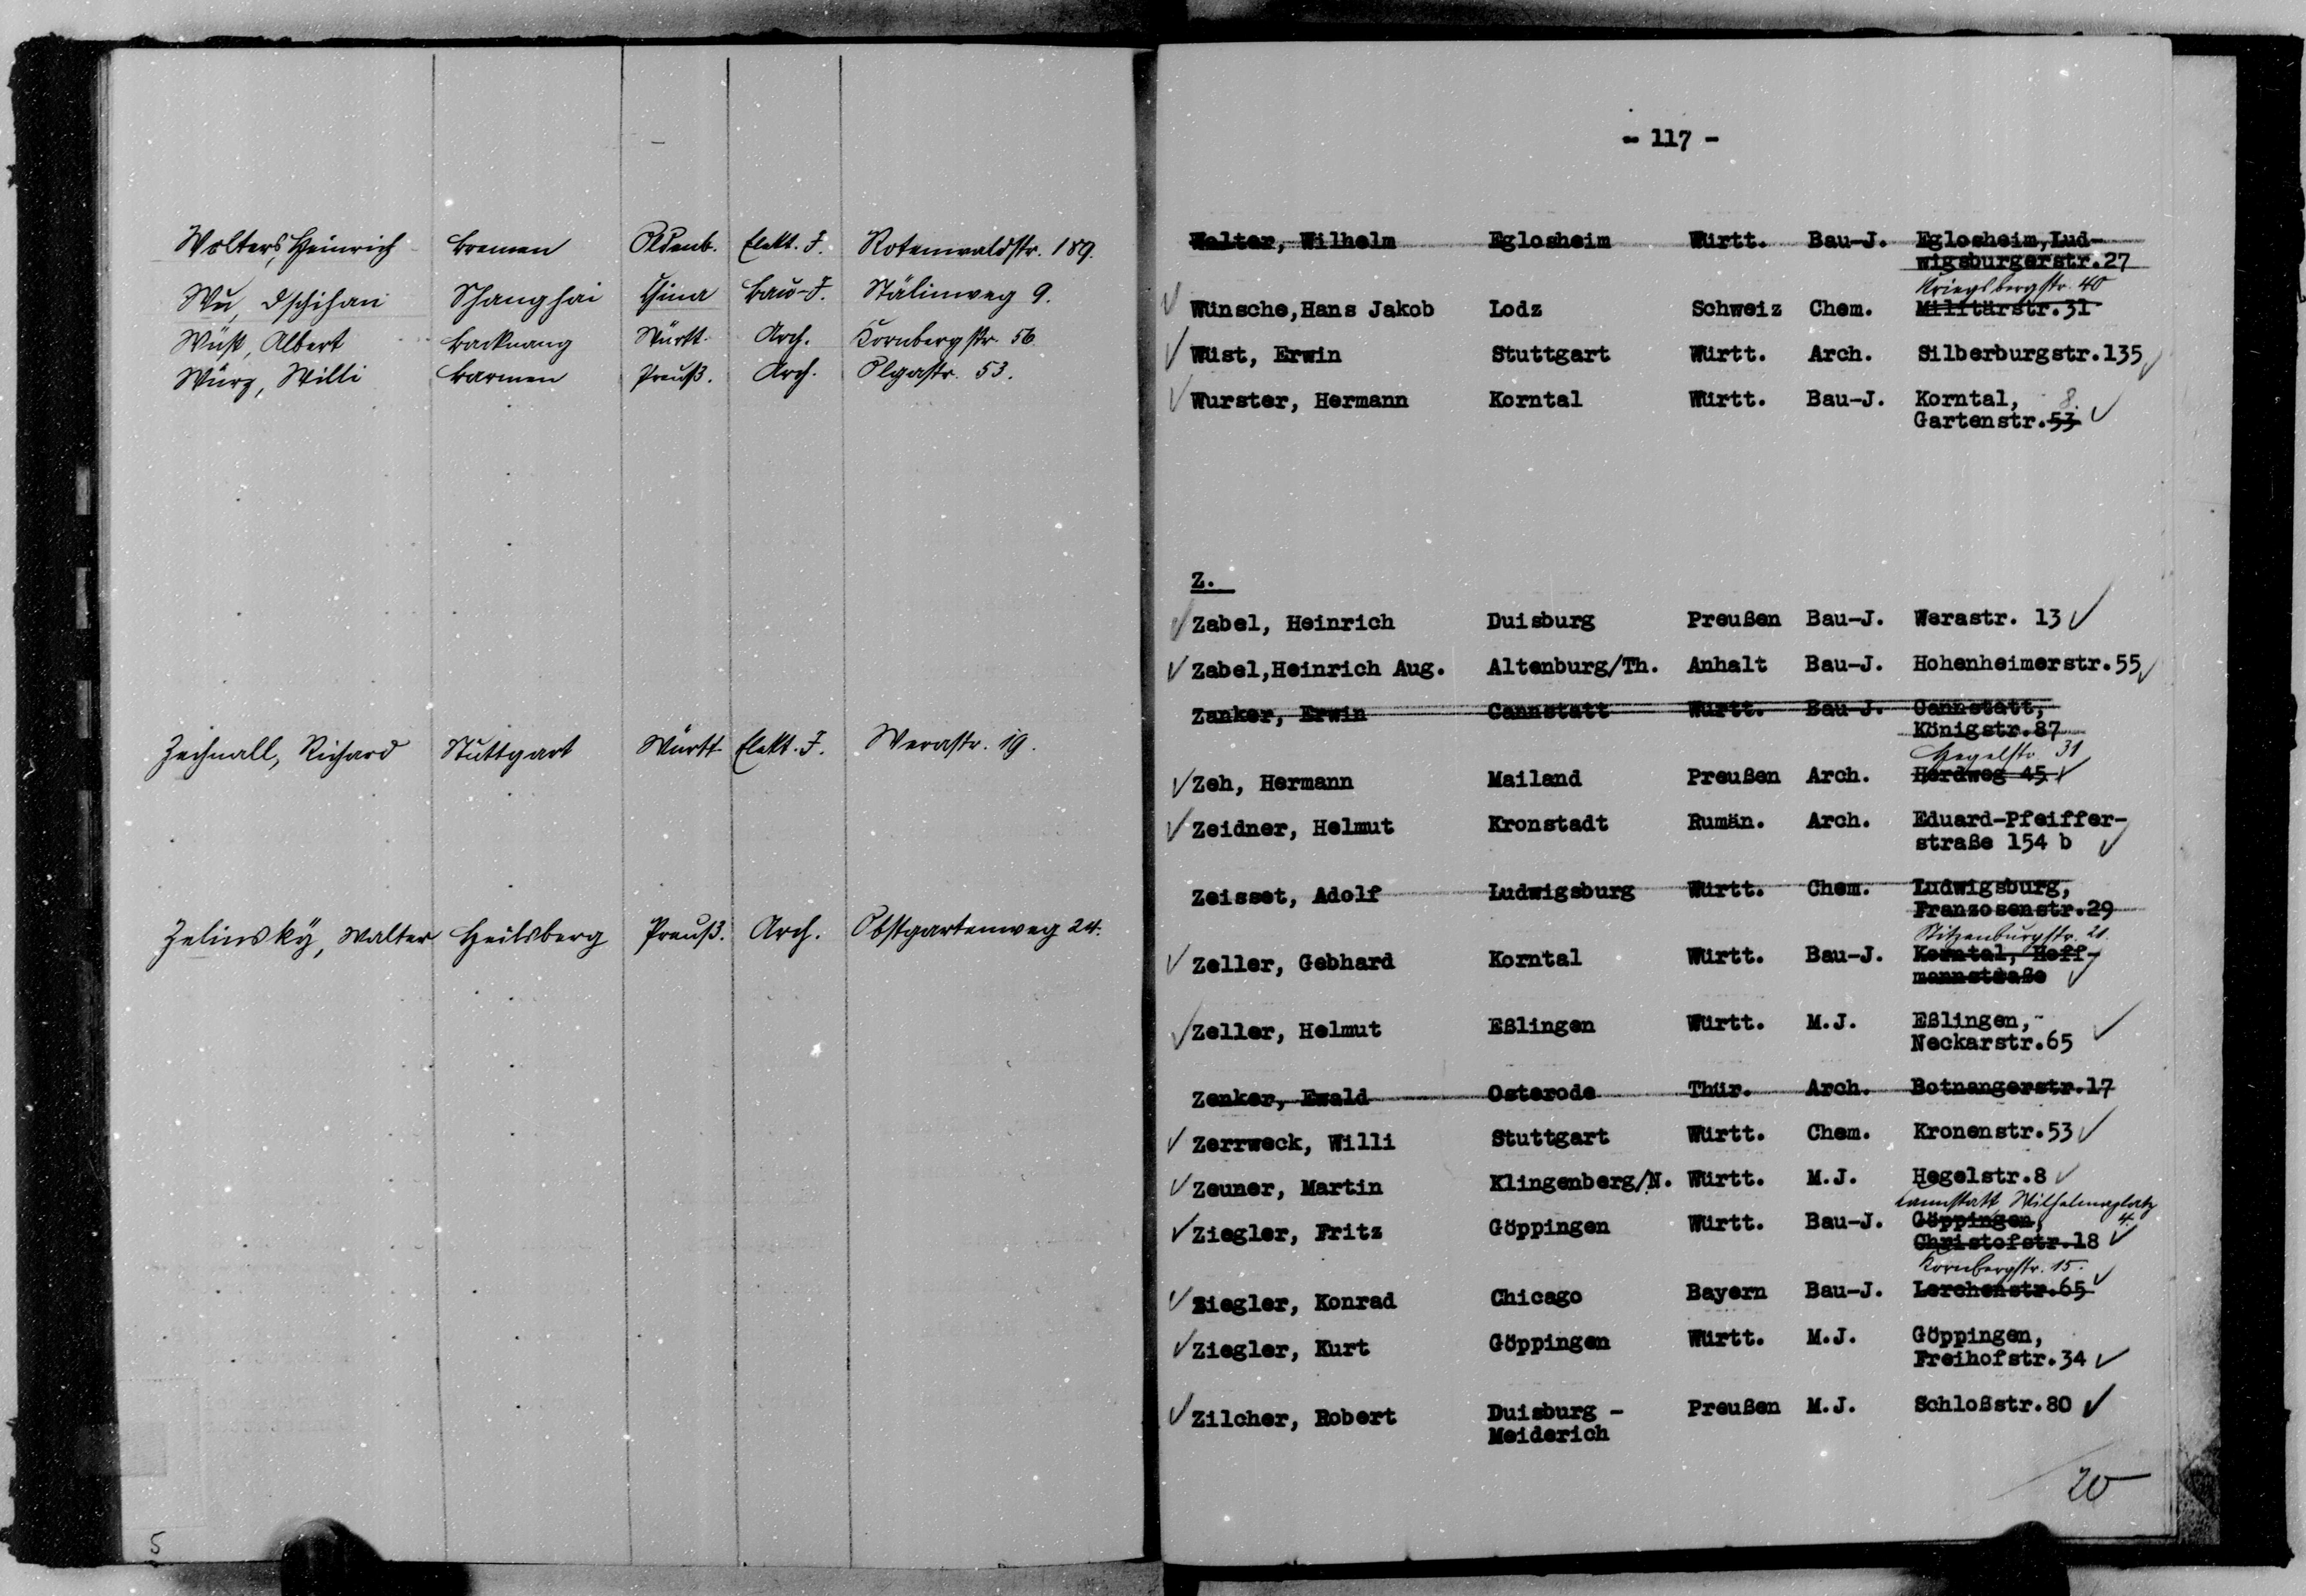 Wolters, Heinrich Bremen Oldenb. Elekt. J. Rotenwaldstr. 189.
Wu, Dschihan Shanghai China Bau-J. Stälinweg 9.
Wüst, Albert Backnang Württ. Arch. Kornbergstr. 56
Würz, Willi Barmen Preuß. Arch. Olgastr. 53.
Zechnall, Richard Stuttgart Württ. Elekt. J. Werastr. 19.
Zelinsky, Walter Heilsberg Preuß. Arch. Obstgartenweg 24.
5
- 117 -
Walter, Wilhelm Eglosheim Württ. Bau-J. Eglosheim, Lud-
wigsburgerstr. 27
Kriegsbergstr. 40
Wünsche, Hans Jakob Lodz Schweiz Chem. Militärstr. 31
Wüst, Erwin Stuttgart Württ. Arch. Silberburgstr. 135
Wurster, Hermann Korntal Württ. Bau-J. Korntal, 8.
Gartenstr. 53
Z.
Zabel, Heinrich Duisburg Preußen Bau-J. Werastr. 13
Zabel, Heinrich Aug. Altenburg/Th. Anhalt Bau-J. Hohenheimerstr. 55
Zanker, Erwin Cannstatt Württ. Bau-J. Cannstatt,
Königstr. 87
Hegelstr. 31
Zeh, Hermann Mailand Preußen Arch. Herdweg 45
Zeidner, Helmut Kronstadt Rumän. Arch. Eduard-Pfeiffer-
straße 154 b
Zeisset, Adolf Ludwigsburg Württ. Chem. Ludwigsburg,
Franzosenstr. 29
Stitzenburgstr. 21.
Zeller, Gebhard Korntal Württ. Bau-J. Korntal, Hoff-
mannstraße
Zeller, Helmut Eßlingen Württ. M.J. Eßlingen,
Neckarstr. 65
Zenker, Ewald Osterode Thür. Arch. Botnangerstr. 17
Zerrweck, Willi Stuttgart Württ. Chem. Kronenstr. 53
Zeuner, Martin Klingenberg/N. Württ. M.J. Hegelstr. 8
Cannstatt Wilhelmsplatz
4.
Ziegler, Fritz Göppingen Württ. Bau-J. Göppingen,
Christofstr. 18
Kornbergstr. 15.
Ziegler, Konrad Chicago Bayern Bau-J. Lerchenstr. 65
Ziegler, Kurt Göppingen Württ. M.J. Göppingen,
Freihofstr. 34
Zilcher, Robert Duisburg - Preußen M.J. Schloßstr. 80
Meiderich
20